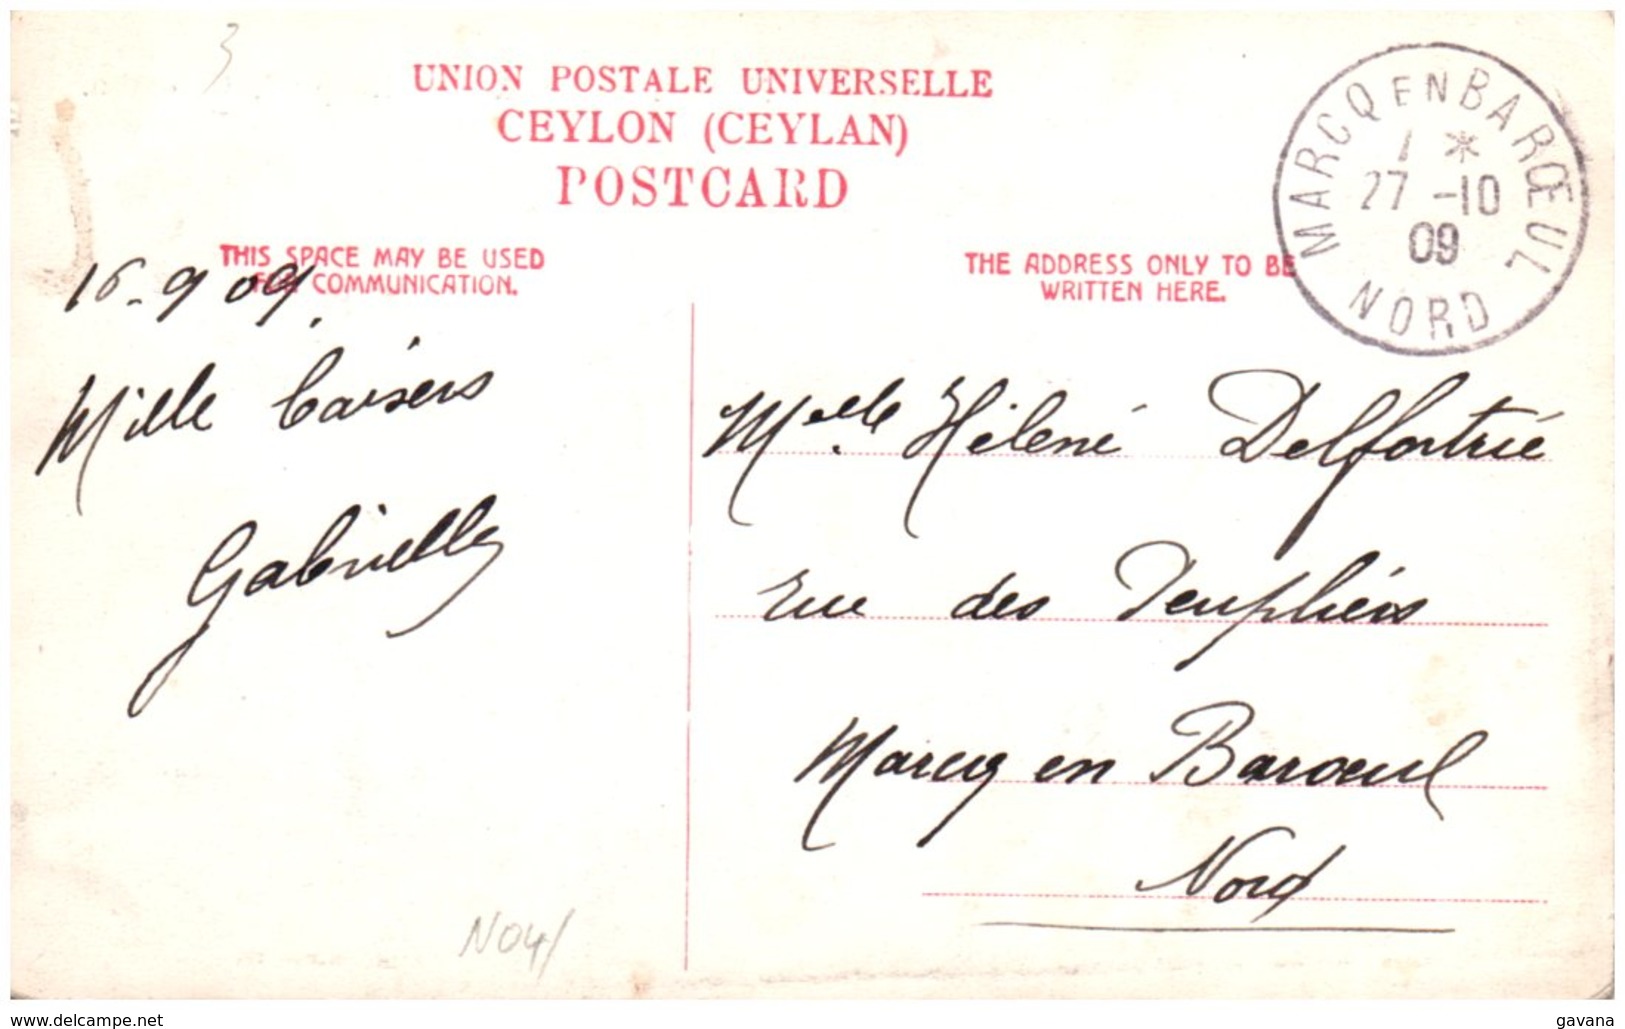 3
UNION POSTALE UNIVERSELLE
CEYLON (CEYLAN)
POSTCARD
MARCQ EN BARŒUL
1 *
27 -10
09
NORD
THIS SPACE MAY BE USED
FOR COMMUNICATION.
THE ADDRESS ONLY TO BE
WRITTEN HERE.
16-9 09.
Mille baisers
Gabrielle
Melle Hélène Delfortrie
rue des Peupliers
Marcq en Baroeul
Nord
N04/
www.delcampe.net
gavana